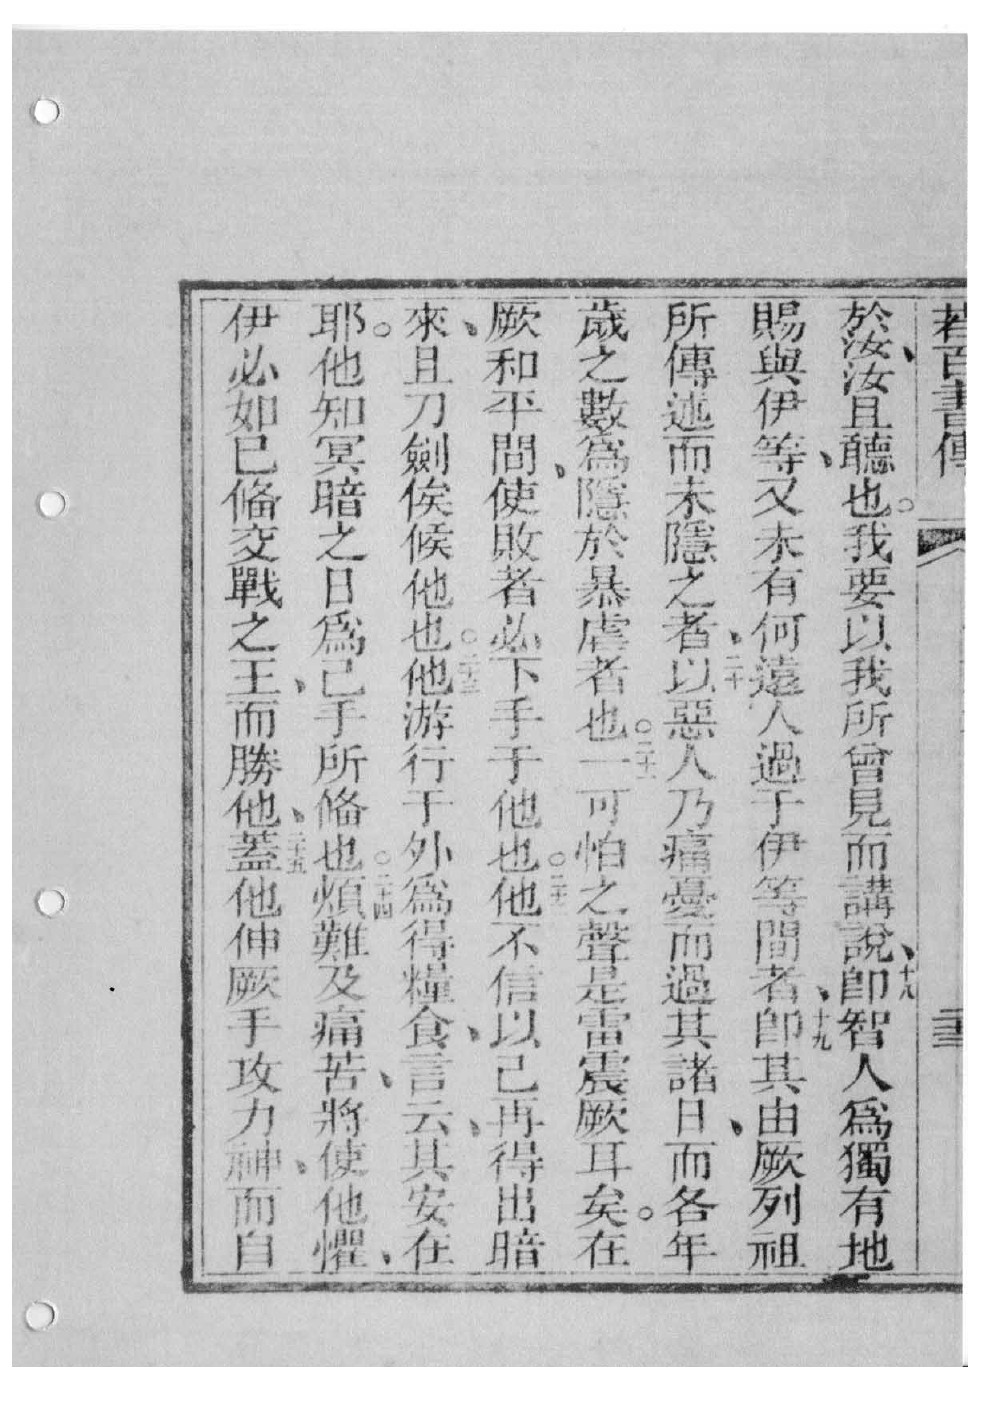 若百書傳
於汝、汝且聽也。我要以我所曾見而講說、十九卽智人爲獨有地
賜與伊等、又未有何遠人過于伊等間者、十九卽其由厥列祖
所傳述而未隱之者、二十以惡人乃痛憂而過其諸日、而各年
歲之數爲隱於暴虐者也。二十一一可怕之聲是雷震厥耳矣。在
厥和平間、使敗者必下手于他也。二十二他不信以己再得出暗
來、且刀劍俟候他也。二十三他游行于外爲得糧食、言云、其安在
耶。他知冥暗之日爲己手所俻也。二十四煩難及痛苦、將使他懼、
伊必如已俻交戰之王、而勝他、二十五蓋他伸厥手攻力神、而自